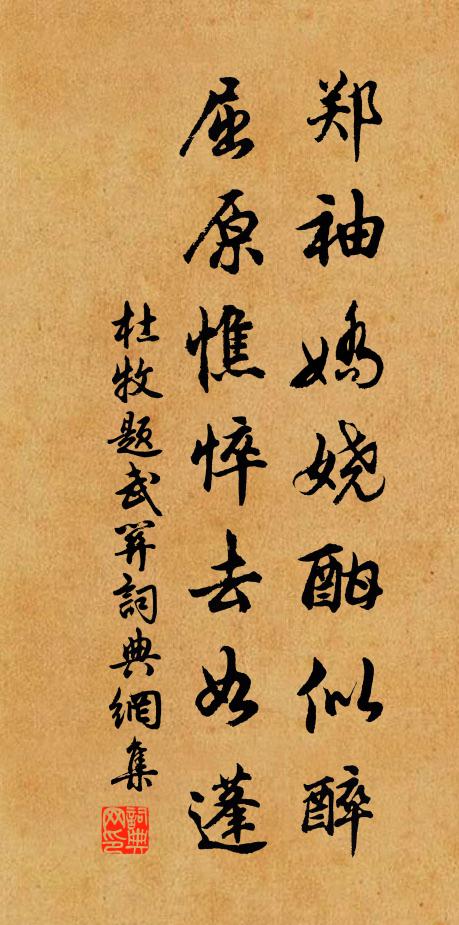 郑袖嬌娆酣似醉
屈原憔悴去如蓬
杜牧题武关詞典網集
詞典网印